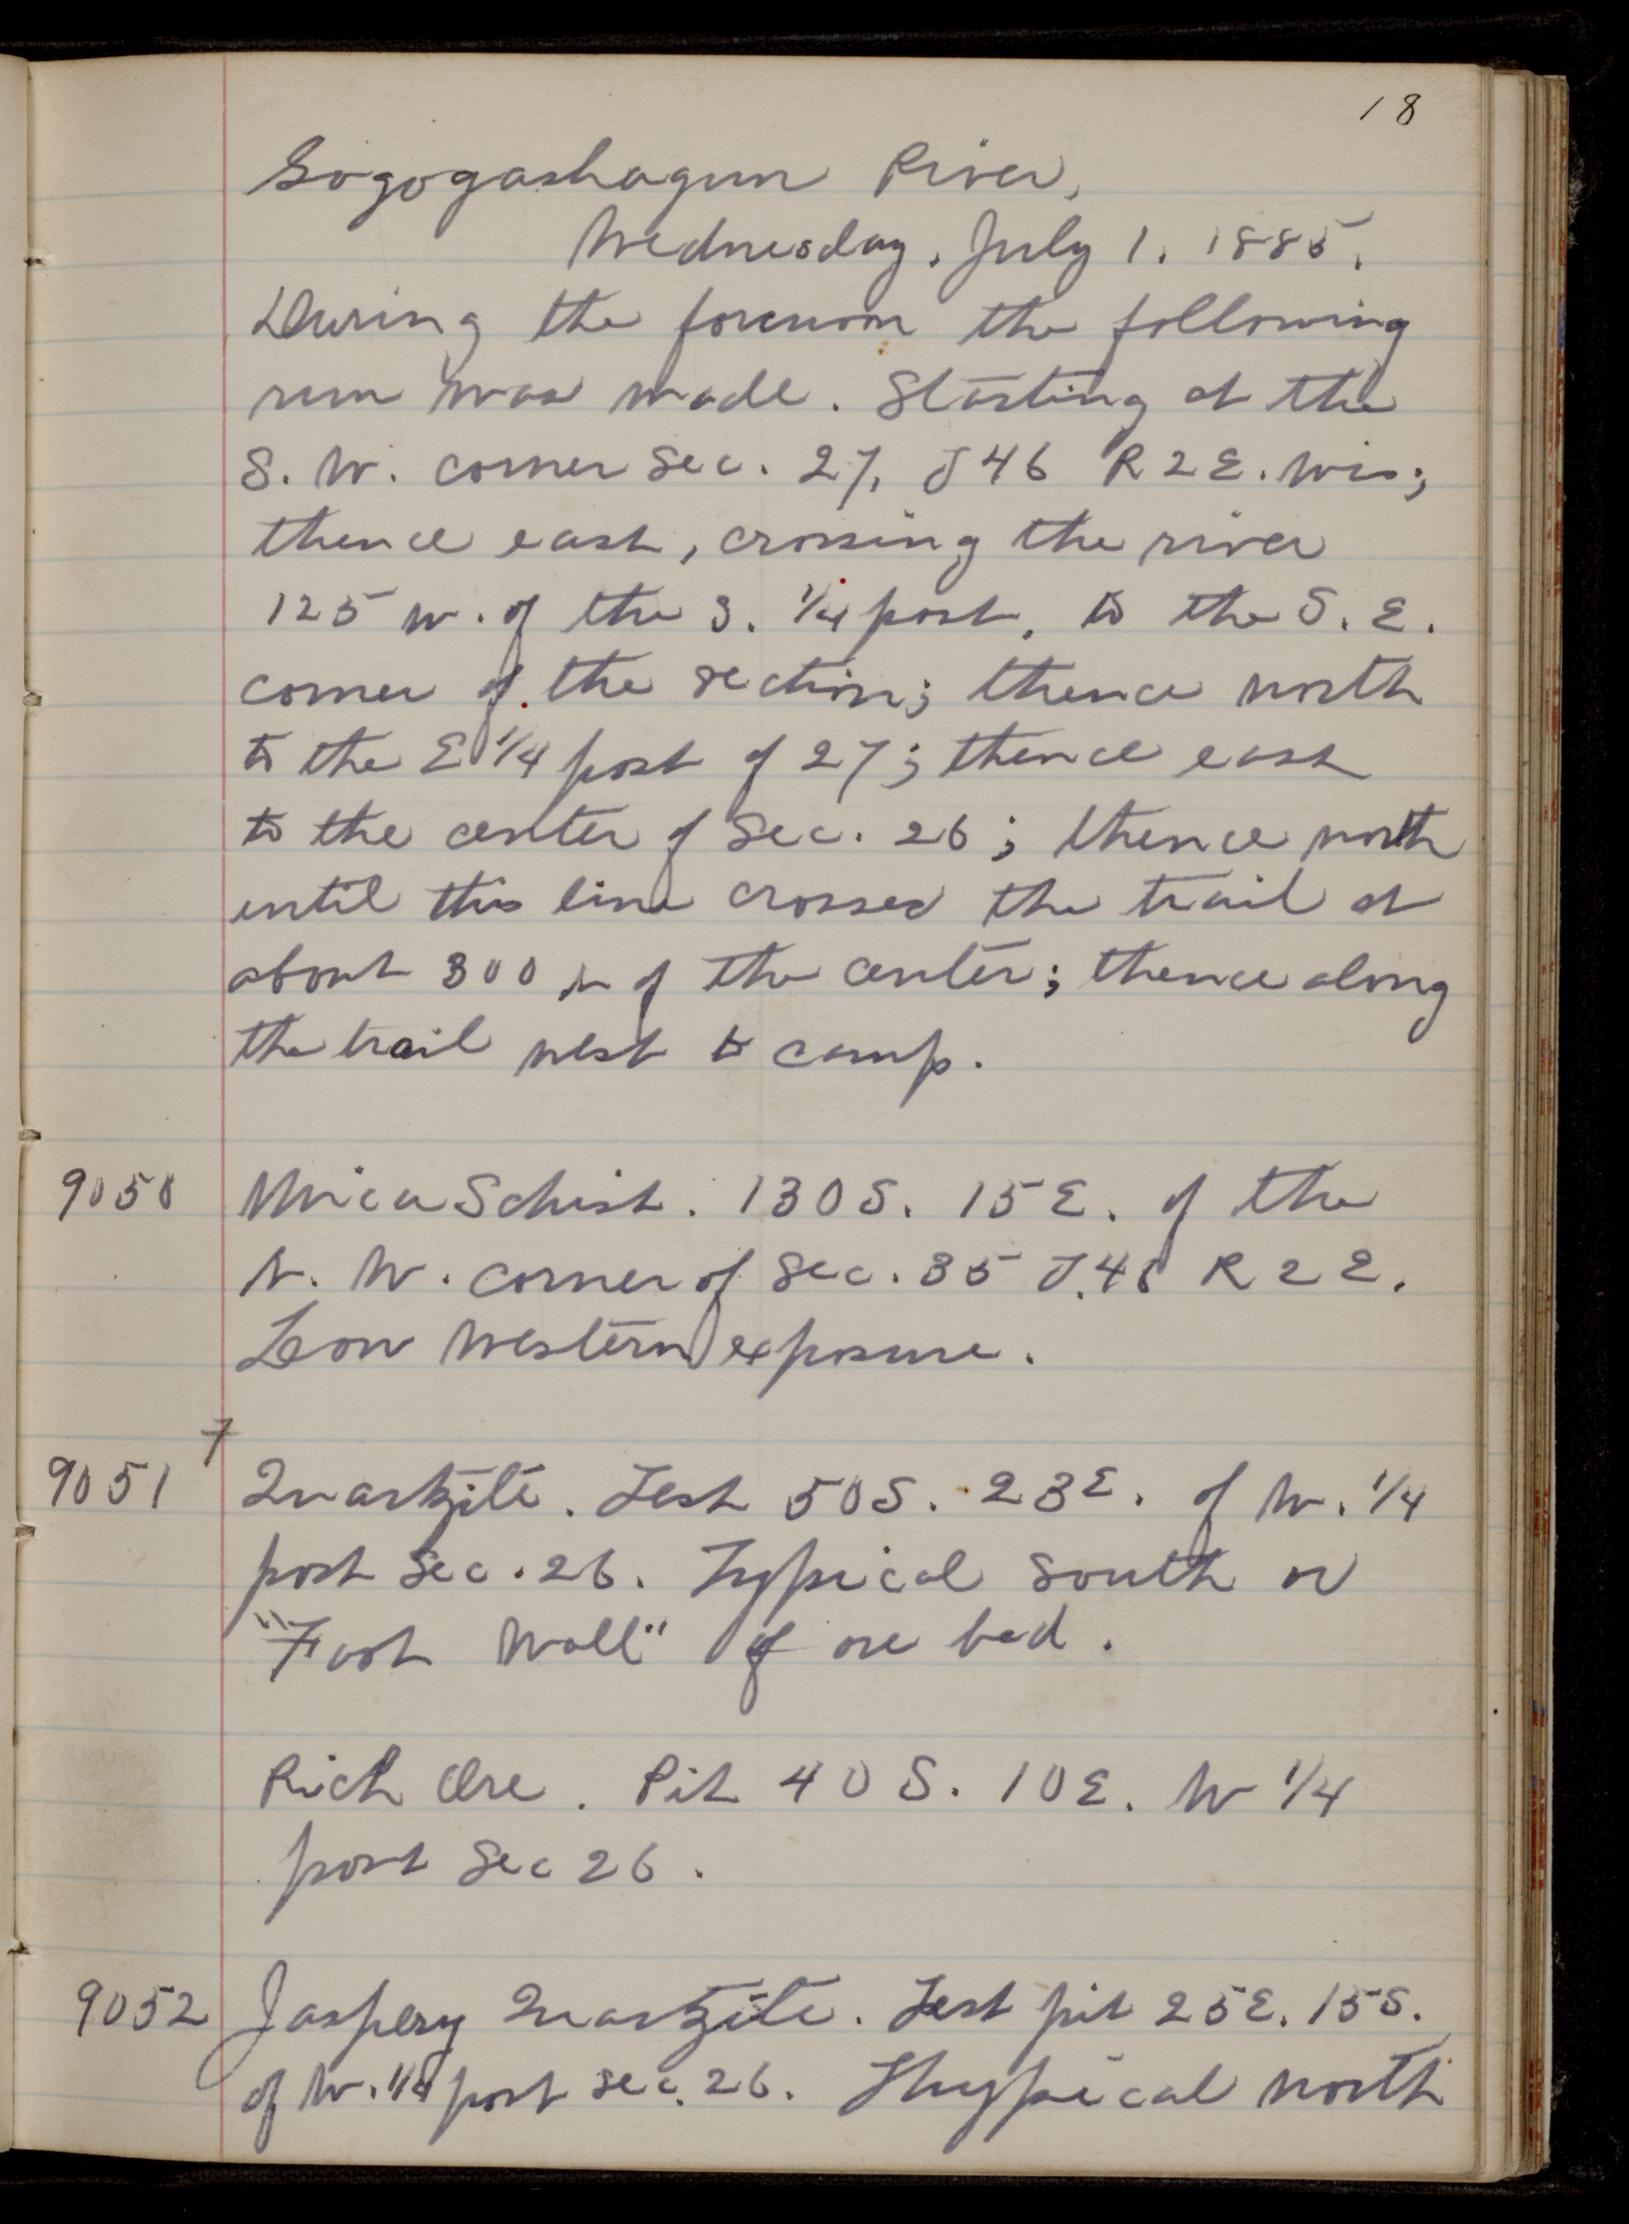 18
Gogogashagun River,
Wednesday, July 1, 1885.
During the forenoon the following
run was made. Starting at the
S. W. corner Sec. 27, T 46 R 2 E. Wis;
thence east, crossing the river
125 W. of the S. 1/4 post, to the S. E.
corner of the section; thence north
to the E 1/4 post of 27; thence east
to the center of Sec. 26; thence north
until this line crossed the trail at
about 300 N of the center; thence along
the trail west to camp.
9050 Mica Schist. 130 S. 15 E. of the
N. W. corner of Sec. 35 T. 46 R 2 E.
Low Western exposure.
7
9051 Quartzite. Test 50 S. 23 E. of W. 1/4
post Sec. 26. Typical South or
"Foot Wall" of ore bed.
Rich Ore. Pit 40 S. 10 E. W 1/4
post Sec 26.
9052 Jaspery Quartzite. Test pit 25 E. 15 S.
of W. 1/4 post Sec. 26. Thypical north